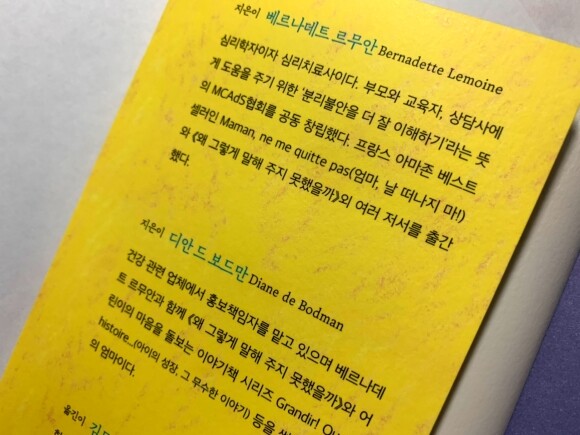 지은이 베르나데트 르무안 Bernadette Lemoine
심리학자이자 심리치료사이다. 부모와 교육자, 상담사에
게 도움을 주기 위한 '분리불안을 더 잘 이해하기'라는 뜻
의 MCAdS협회를 공동 창립했다. 프랑스 아마존 베스트
셀러인 Maman, ne me quitte pas(엄마, 날 떠나지 마!)
와 《왜 그렇게 말해 주지 못했을까》외 여러 저서를 출간
했다.
지은이 디안 드 보드만 Diane de Bodman
건강 관련 업체에서 홍보책임자를 맡고 있으며 베르나데
트 르무안과 함께 《왜 그렇게 말해 주지 못했을까》와 어
린이의 마음을 돌보는 이야기책 시리즈 Grandir!
histoire...(아이의 성장, 그 무수한 이야기) 등을
의 엄마이다.
옮긴이